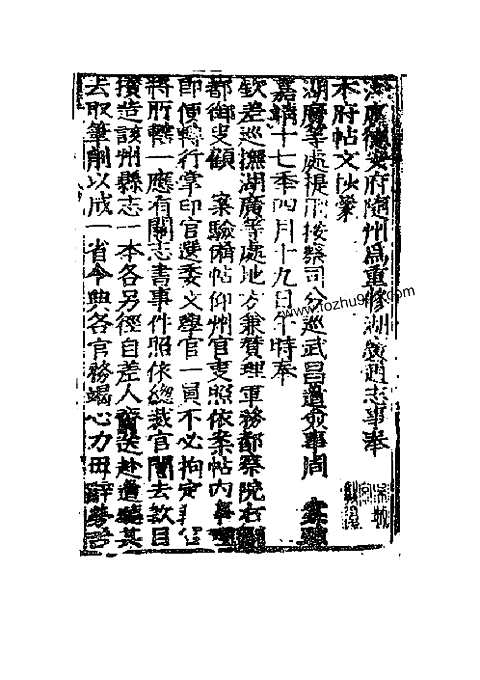 湖廣德安府隨州爲重修湖廣通志事奉
本府帖文伏蒙
湖廣等處提刑按察司分巡武昌道僉事周 案驗
嘉靖十七年四月十九日午時奉
欽差巡撫湖廣等處地方兼贊理軍務都察院右
都御史顧 案驗備帖仰州官吏照依案帖內事理
即便轉行掌印官選委文學官一員不必拘定
將所轄一應有關志書事件照依總裁官開去款目
攢造該州縣志一本各另徑自差人齎送赴道聽其
去取筆削以成一省令典各官務竭心力毋辭勞